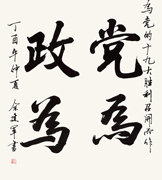 為党的十九大胜利召開而作
党為
政為
丁酉年仲夏 余建军書